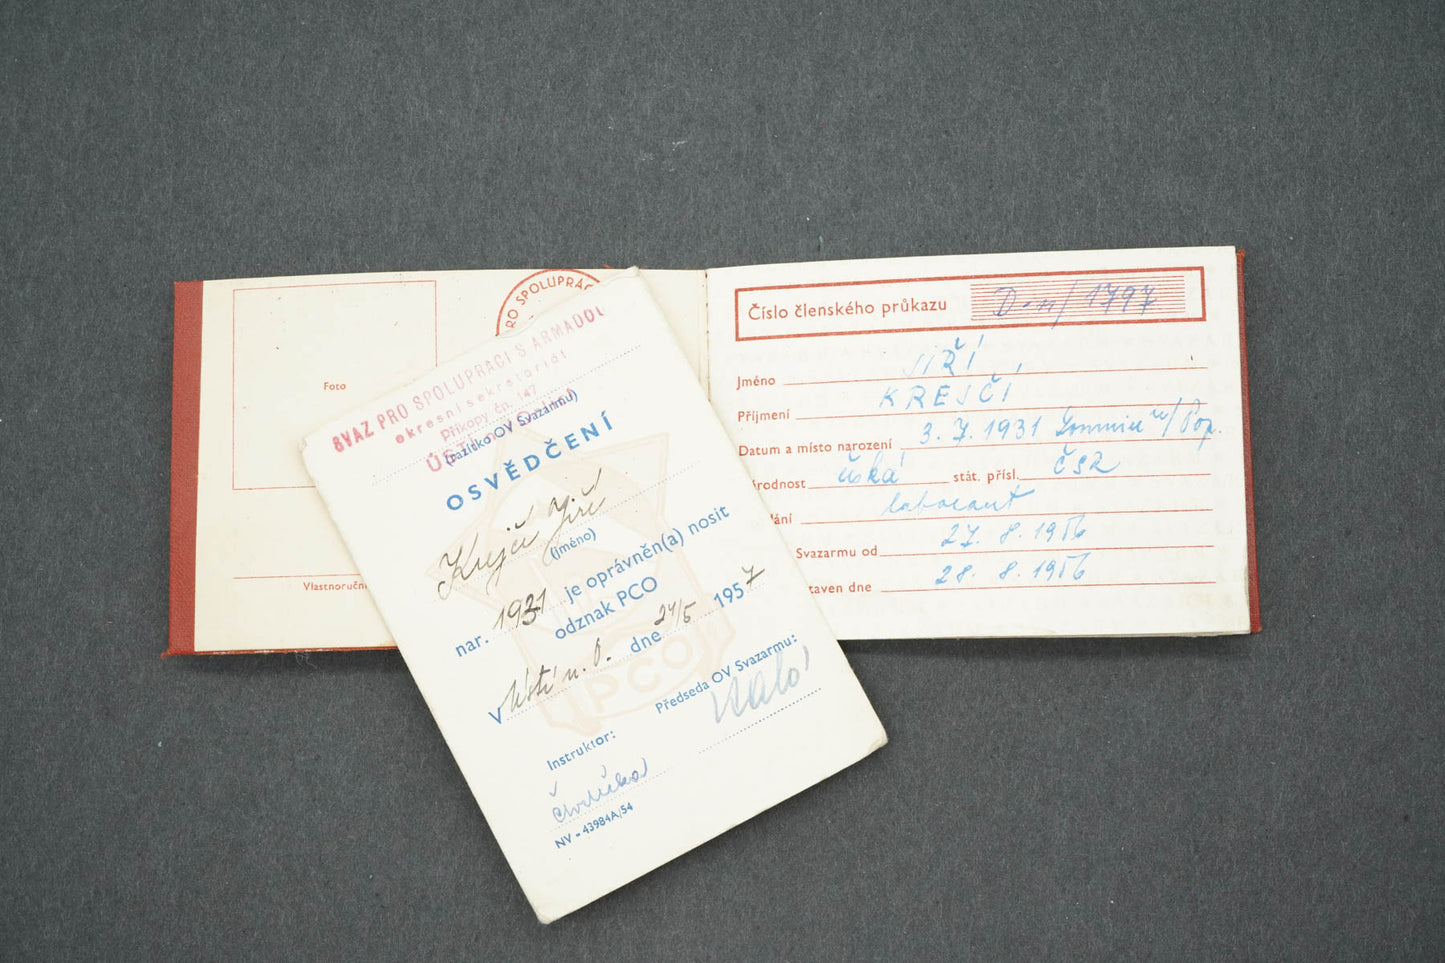 Foto
RO SPOLUPRÁC
Vlastnoručn
SVAZ PRO SPOLUPRACI S ARMADOU
okresní sekretariát
Příkopy čp. 147
ÚSTÍ
(razítko OV Svazarmu)
OSVĚDČENÍ
Krejčí Jiří
(jméno)
nar. 1931 je oprávněn(a) nosit
odznak PCO
V Ústí n. O. dne 24/5 1957
PCO
Instruktor:
Předseda OV Svazarmu:
NV - 43984A/54
Číslo členského průkazu D-n/1797
Jméno JIŘÍ
Příjmení KREJČÍ
Datum a místo narození 3. 7. 1931 Lomnice n/Pop.
árodnost česká stát. přísl. ČSR
lání laborant
Svazarmu od 27. 8. 1956
taven dne 28. 8. 1956